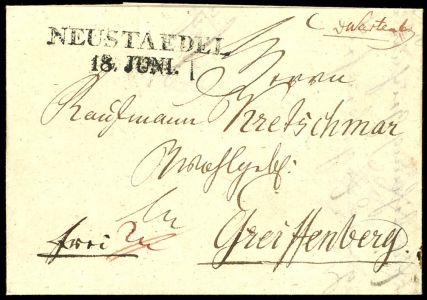 NEUSTAEDEL
18. JUNI.
Herrn
Kaufmann Kretschmar
Wohlgeb.
in
frei
Greiffenberg.